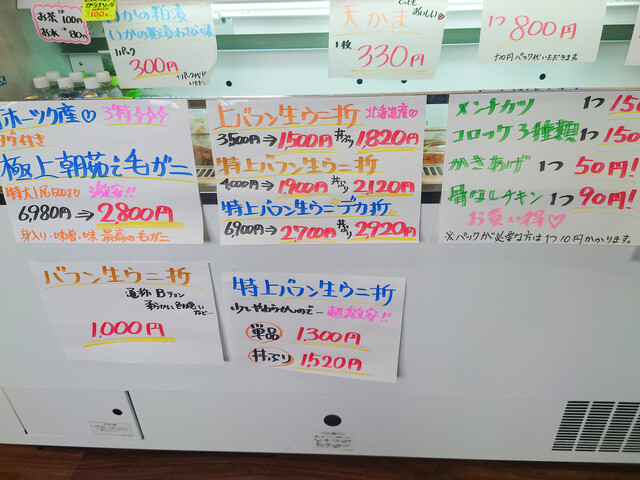 お茶 100円
お水 80円
ガラナソーダ
100円
いかの粕漬
いかの粕漬わさび味
1パック
300円
天かま
おいしい♡
1枚 330円
1つ 800円
+10円パック代いただきます。
ホーツク産♡
極上朝茹で毛ガニ
特大1尾500g 激安!!
6980円⇒2,800円
身入り・味噌・味 最高の毛ガニ
上バフン生ウニ折 北海道産♡
3,500円→1,500円 丼ぶり 1,820円
特上バフン生ウニ折
4,000円→1,900円 丼ぶり 2,120円
特上バフン生ウニデカ折
6,900円→2,700円 丼ぶり 2,920円
メンチカツ 1つ 150
コロッケ3種類 1つ 150
かきあげ 1つ 50円!
骨なしチキン 1つ 90円!
お買い得♡
※パックが必要な方は1つ10円かかります。
バフン生ウニ折
通称Bラン
柔らかい 色悪い
など…
1,000円
特上バフン生ウニ折
少しやわらかいので… 超激安!!
単品 1,300円
丼ぶり 1,520円